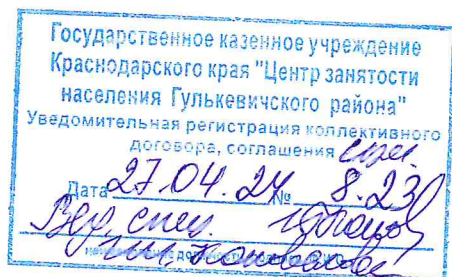 Государственное казенное учреждение
Краснодарского края "Центр занятости
населения Гулькевичского района"
Уведомительная регистрация коллективного
договора, соглашения
Дата 27.04.24 № 8-23
Вед. спец.